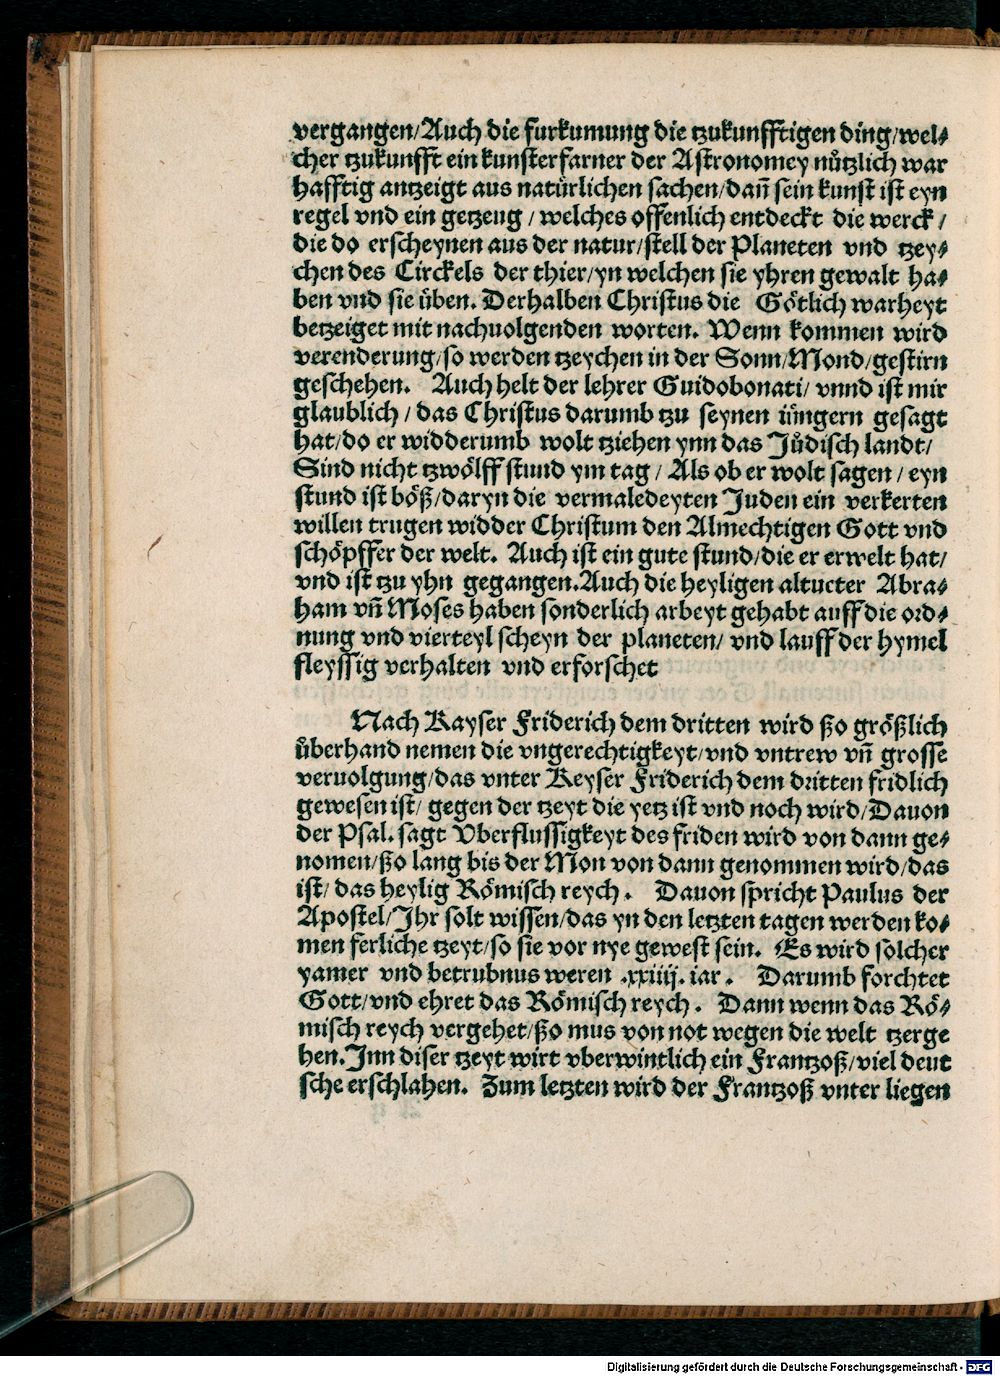 vergangen/Auch die furkumung die tzukunfftigen ding/wel-
cher tzukunfft ein kunsterfarner der Astronomey nuͤtzlich war
hafftig antzeigt aus natuͤrlichen sachen/dañ sein kunst ist eyn
regel vnd ein getzeug / welches offenlich entdeckt die werck /
die do erscheynen aus der natur/stell der Planeten vnd tzey-
chen des Circkels der thier/yn welchen sie yhren gewalt ha-
ben vnd sie uͤben. Derhalben Christus die Goͤtlich warheyt
betzeiget mit nachuolgenden worten. Wenn kommen wird
verenderung/so werden tzeychen in der Sonn/Mond/gestirn
geschehen. Auch helt der lehrer Guidobonati/ vnnd ist mir
glaublich / das Christus darumb tzu seynen iuͤngern gesagt
hat/do er widderumb wolt tziehen ynn das Juͤdisch landt/
Sind nicht tzwoͤlff stund ym tag / Als ob er wolt sagen / eyn
stund ist boͤß/daryn die vermaledeyten Juden ein verkerten
willen trugen widder Christum den Almechtigen Gott vnd
schoͤpffer der welt. Auch ist ein gute stund/die er erwelt hat/
vnd ist tzu yhn gegangen.Auch die heyligen altucter Abra-
ham vñ Moses haben sonderlich arbeyt gehabt auff die ord-
nung vnd vierteyl scheyn der planeten/ vnd lauff der hymel
fleyssig verhalten vnd erforschet
Nach Kayser Friderich dem dritten wird ßo groͤßlich
uͤberhand nemen die vngerechtigkeyt/vnd vntrew vñ grosse
veruolgung/das vnter Keyser Friderich dem dritten fridlich
gewesen ist/ gegen der tzeyt die yetz ist vnd noch wird/Dauon
der Psal. sagt Vberflussigkeyt des friden wird von dann ge-
nomen/ßo lang bis der Mon von dann genommen wird/das
ist/ das heylig Roͤmisch reych. Dauon spricht Paulus der
Apostel/Jhr solt wissen/das yn den letzten tagen werden ko-
men ferliche tzeyt/so sie vor nye gewest sein. Es wird solcher
yamer vnd betrubnus weren .xxiiij. iar. Darumb forchtet
Gott/vnd ehret das Roͤmisch reych. Dann wenn das Roͤ-
misch reych vergehet/ßo mus von not wegen die welt tzerge
hen.Jnn diser tzeyt wirt vberwintlich ein Frantzoß/viel deut
sche erschlahen. Zum letzten wird der Frantzoß vnter liegen
Digitalisierung gefördert durch die Deutsche Forschungsgemeinschaft - DFG